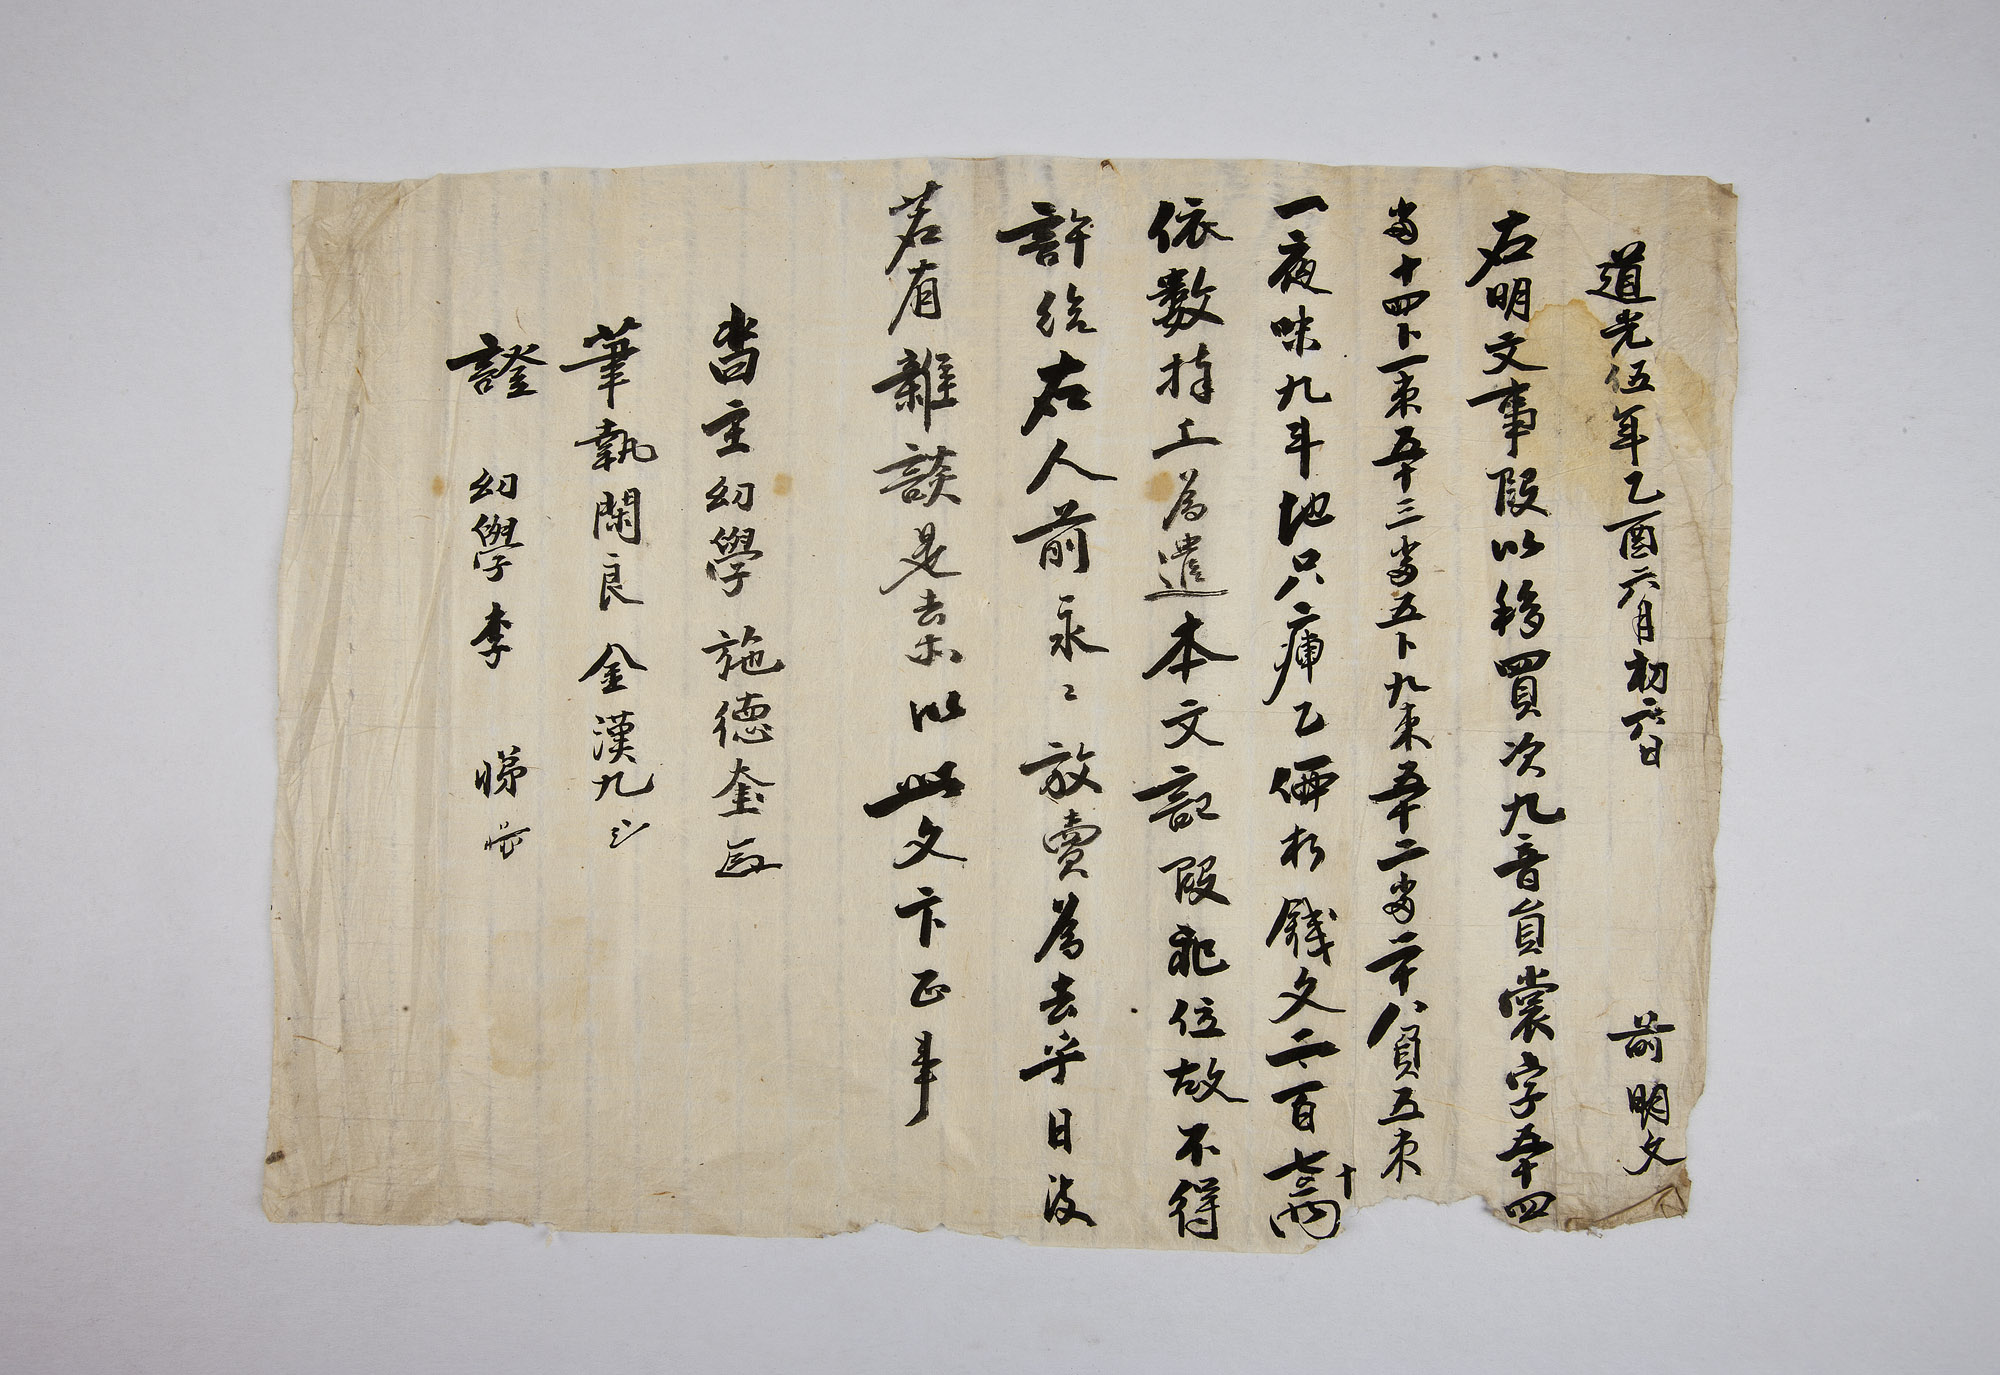 道光伍年乙酉六月初六日 前明文
右明文事段以移買次九音員裳字五十四
畓十四卜一束五十三畓五卜九束五十二畓二十八負五束
一夜味九斗地只庫乙價折錢文二百七十兩
依數捧上為遣本文記段犯位故不得
許給右人前永〻放賣為去乎日後
若有雜談是去等以此文卞正事
畓主幼學 施德奎
筆執閑良 金漢九
證 幼學 李